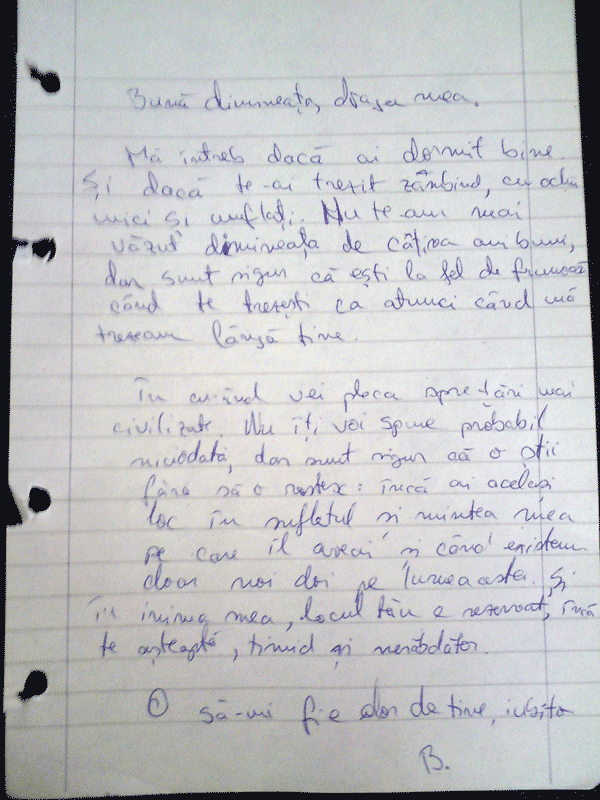 Bună dimineața, draga mea.
Mă întreb dacă ai dormit bine.
Și dacă te-ai trezit zâmbind, cu ochii
mici și umflați. Nu te-am mai
văzut dimineața de câțiva ani buni,
dar sunt sigur că ești la fel de frumoasă
când te trezești ca atunci când mă
trezeam lângă tine.
În curînd vei pleca spre țări mai
civilizate. Nu îți voi spune probabil
niciodată, dar sunt sigur că o știi
fără să o rostesc: încă ai același
loc în sufletul și mintea mea
pe care îl aveai și când existam
doar noi doi pe lumea asta. Și
în inima mea, locul tău e rezervat, încă
te așteaptă, timid și nerăbdător.
O să-mi fie dor de tine, iubito
B.